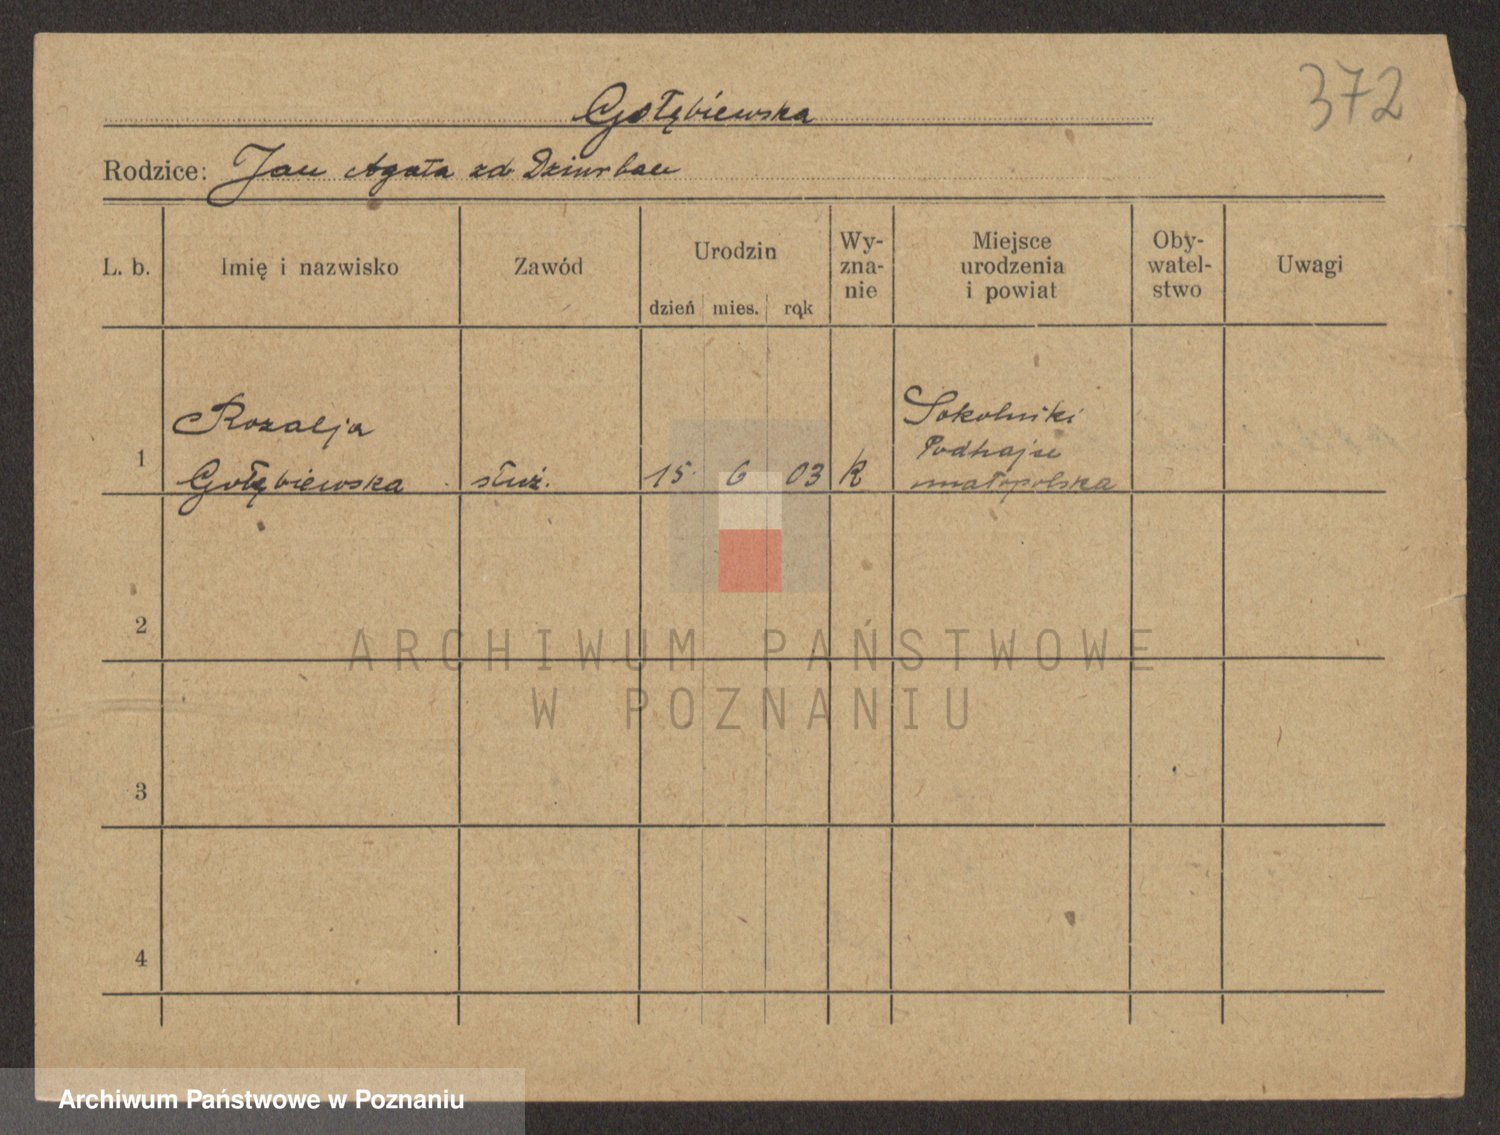 372
Gołębiewska
Rodzice: Jan Agata zd
L. b.
Imię i nazwisko
Zawód
Urodzin
dzień mies. rok
Wy-
zna-
nie
Miejsce
urodzenia
i powiat
Oby-
watel-
stwo
Uwagi
1
Rozalja
Gołębiewska
służ.
15 6 03
R
Sokolniki
Podhajce
małopolska
2
3
4
ARCHIWUM PAŃSTWOWE
W POZNANIU
Archiwum Państwowe w Poznaniu